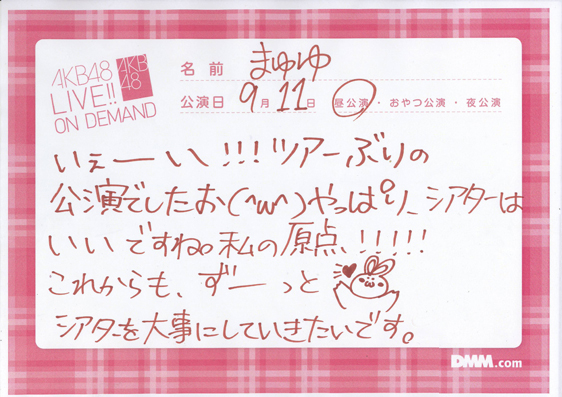 AKB48
LIVE!!
ON DEMAND
AKB
48
名前 まゆゆ
公演日 9月11日 昼公演・おやつ公演・夜公演
いぇーい!!!ツアーぶりの
公演でしたお(^ω^)やっぱり、シアターは
いいですね。私の原点、!!!!!
これからも、ずーっと
シアターを大事にしていきたいです。
DMM.com